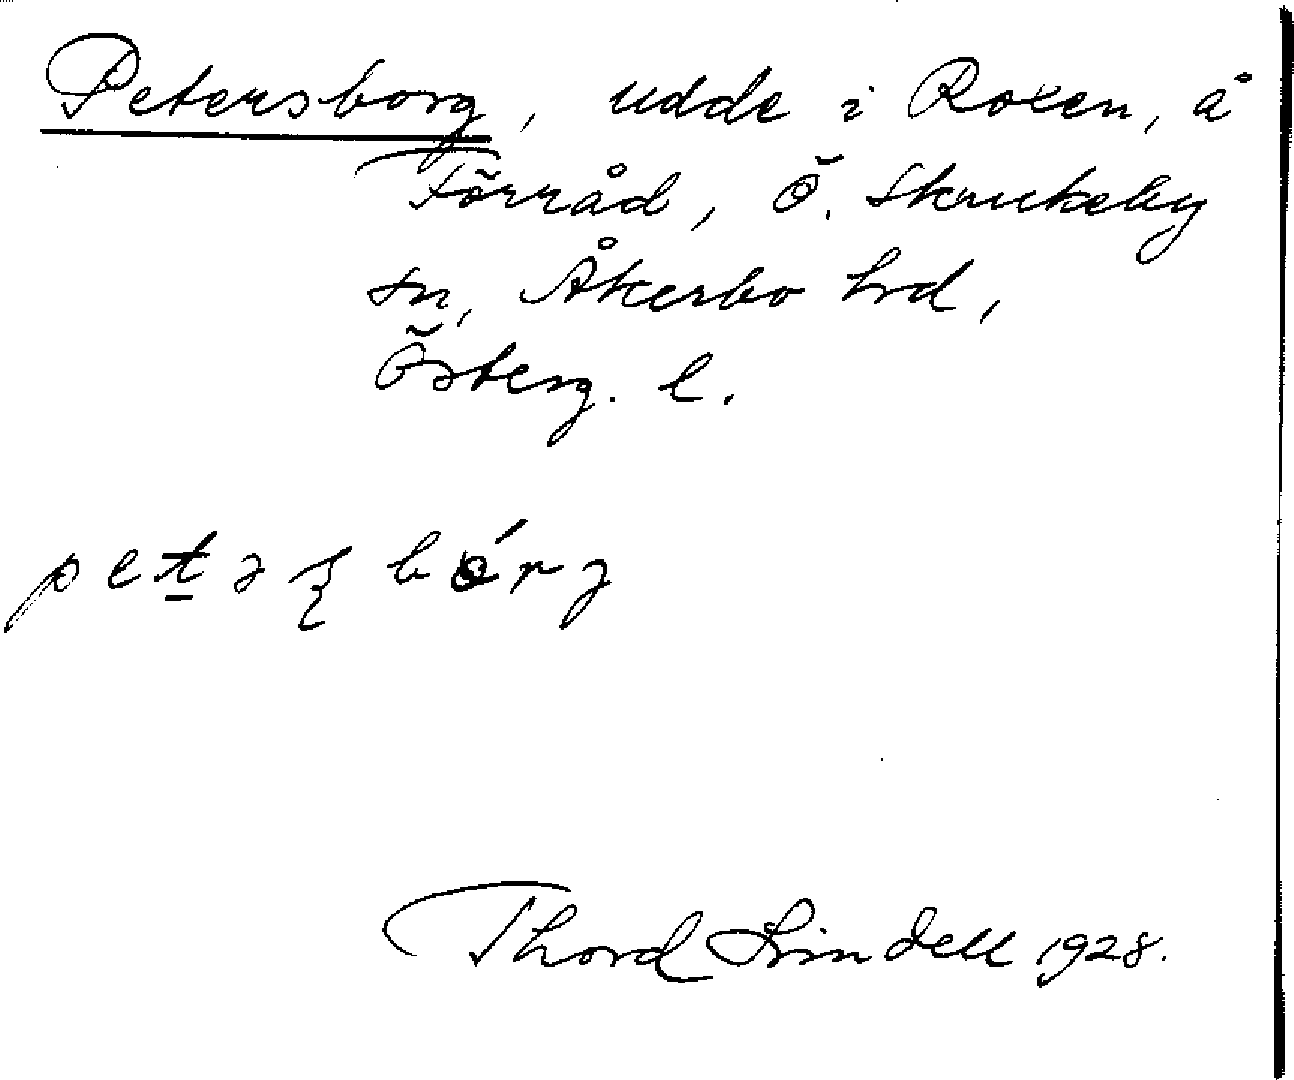 Petersborg, udde i Roxen, å
Förråd, Ö. Skrukeby
sn, Åkerbo hrd,
Österg. l.
Thord Lindell 1928.